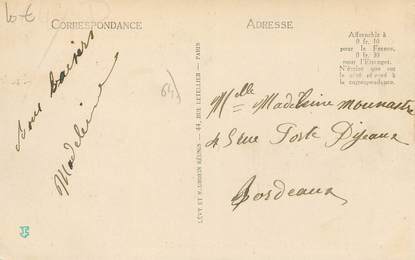 10 €
CORRESPONDANCE
Bons baisers
Madeleine
64)
LÉVY ET NEURDEIN RÉUNIS — 44, RUE LETELLIER — PARIS
ADRESSE
Affranchir à
0 fr. 10
pour la France,
0 fr.
pour l'Étranger.
N'écrire que sur
le côté réservé à
la correspondance.
Melle Madeleine Mounastre
45 rue Porte Dijeaux
Bordeaux